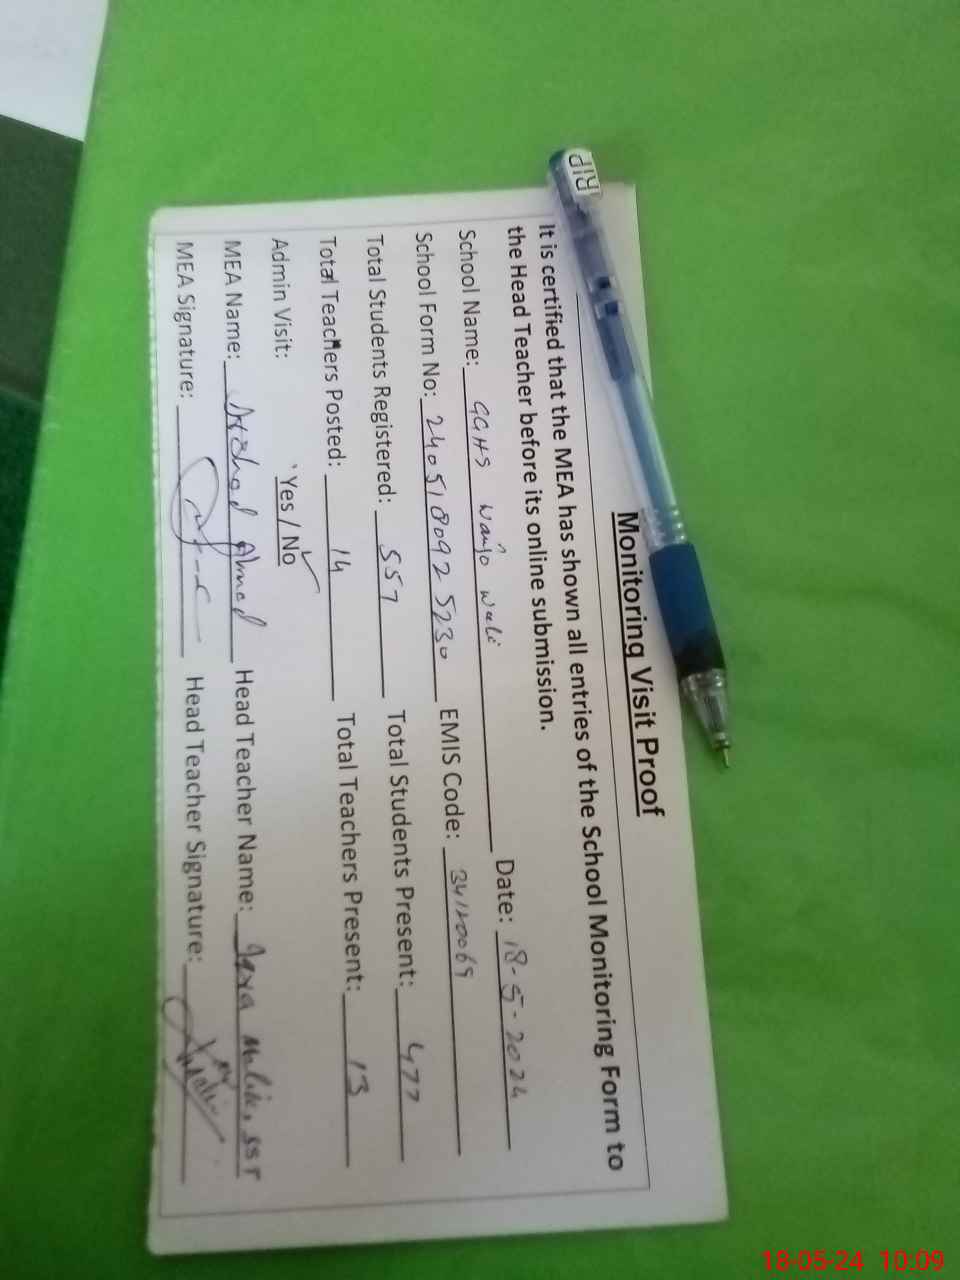 Monitoring Visit Proof
It is certified that the MEA has shown all entries of the School Monitoring Form to
the Head Teacher before its online submission.
School Name: GGHS Wanjo Wali Date: 18-5-2024
School Form No: 240518092 5230 EMIS Code: 34120069
Total Students Registered: 557 Total Students Present: 477
Total Teachers Posted: 14 Total Teachers Present: 13
Admin Visit: Yes / No
MEA Name: Ahmed Head Teacher Name: Malik, SST
MEA Signature: Head Teacher Signature:
RIP
18-05-24 10:09